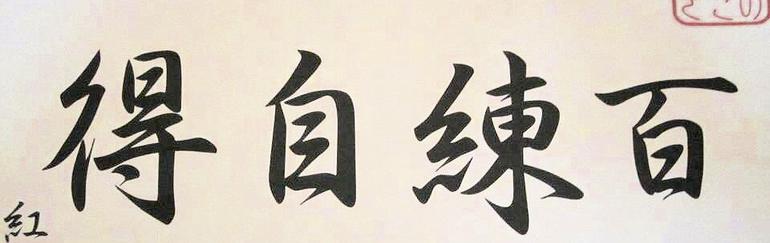 百練自得
紅